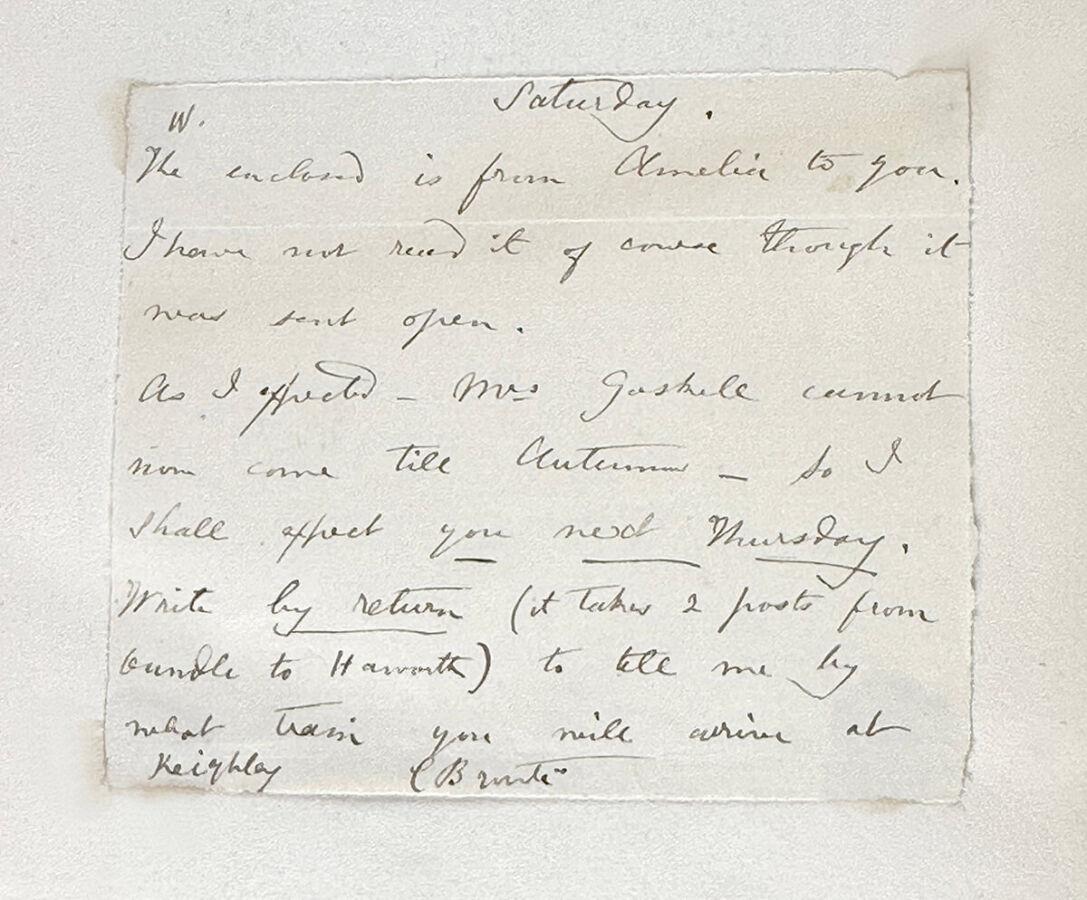 Saturday.
W.
The enclosed is from Amelia to you.
I have not read it of course though it
was sent open.
As I expected – Mrs Gaskell cannot
now come till Autumn – So I
shall expect you next Thursday.
Write by return (it takes 2 posts from
to Haworth) to tell me by
what train you will arrive at
Keighley C Brontë